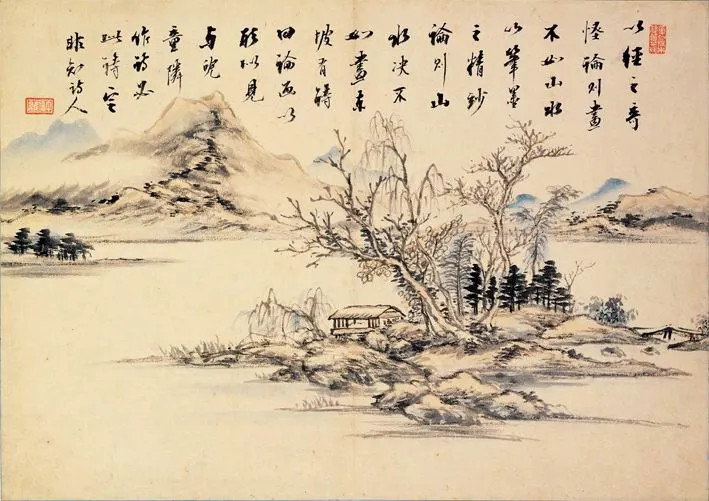 以徑之奇
怪論則畫
不如山水
以筆墨
之精妙
論則山
水決不
如畫東
坡有詩
曰論畫以
形似見
与兒
童隣
作詩必
此詩定
非知詩人